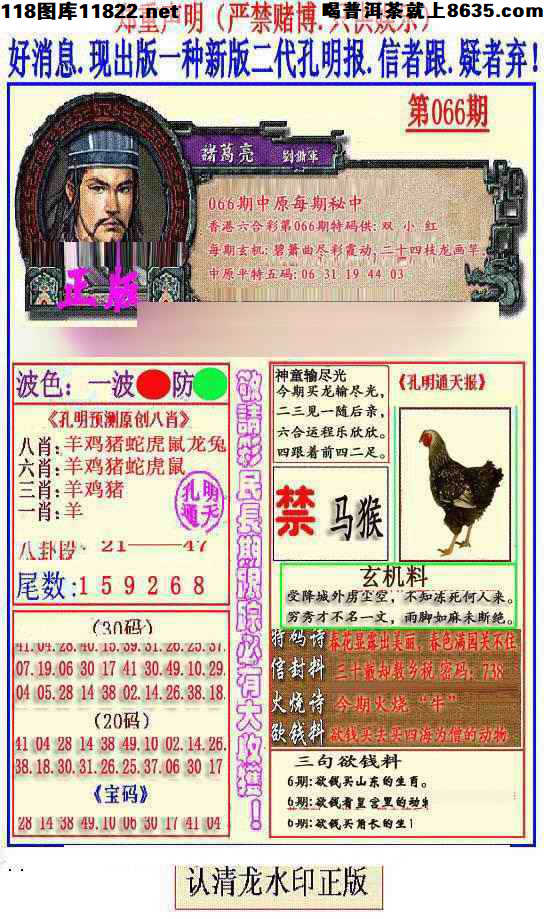 118图库11822.net
喝普洱茶就上8635.com
郑重声明(严禁赌博.只供娱乐)
好消息.现出版一种新版二代孔明报.信者跟.疑者弃!
第066期
諸葛亮
066期中原每期秘中
香港六合彩第066期特码供: 双 小 红
每期玄机: 碧箫曲尽彩霞动,二十四枝龙画竿.
中原平特五码: 06 31 19 44 03
正版
波色: 一波 防
《孔明预测原创八肖》
八肖: 羊鸡猪蛇虎鼠龙兔
六肖: 羊鸡猪蛇虎鼠
三肖: 羊鸡猪
一肖: 羊
孔明
通天
八卦段: 21——47
尾数: 1 5 9 2 6 8
(30码)
41.04.28.40.15.39.31.26.25.37.
07.19.06 30 17 41 30.49.10.29
04 05.28 14 38 02.14.26.38.18
(20码)
41 04 28 14 38 49.10 02.14.26.
38.18.30.31.26.25.37.06 30 17
《宝码》
28 14 38 49.10 06 30 17 41 04
敬請彩民長期跟踪必有大收獲!
神童输尽光
今期买龙输尽光,
二三见一随后亲,
六合运程乐欣欣。
四跟着前四二足。
禁 马猴
《孔明通天报》
玄机料
受降城外虏尘空, 不知冻死何人来。
穷秀才不名一文, 雨脚如麻未断绝。
特码诗 春花显露出美丽, 春色满园关不住
信封料 三十藏却数乡税.密码: 738
火烧诗 今期火烧“牛”
欲钱料 欲钱买去要四海为僧的动物
三句欲钱料
6期: 欲钱买山东的生肖。
6期: 欲钱看皇宫里的动
6期: 欲钱买角长的生
认清龙水印正版